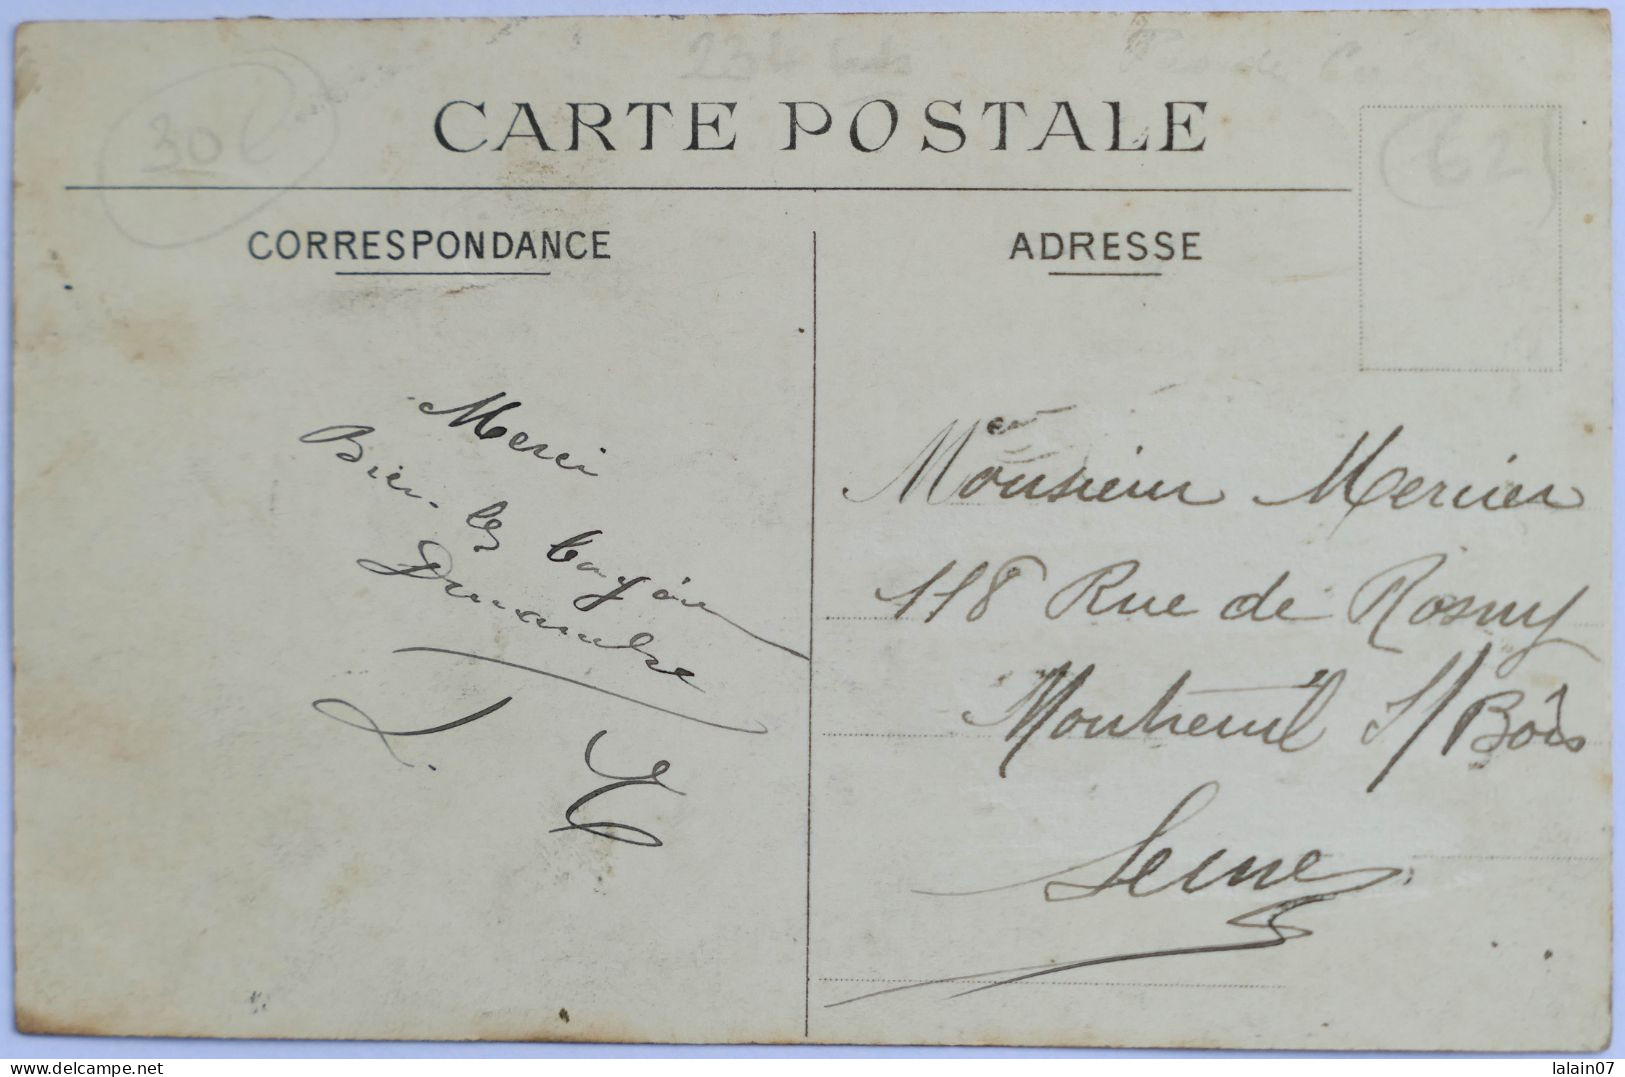 30€
CARTE POSTALE
(62)
CORRESPONDANCE
Merci
Bien les
L.
ADRESSE
Monsieur Mercier
118 Rue de Rosny
Montreuil S/Bois
Seine
delcampe.net
lalain07